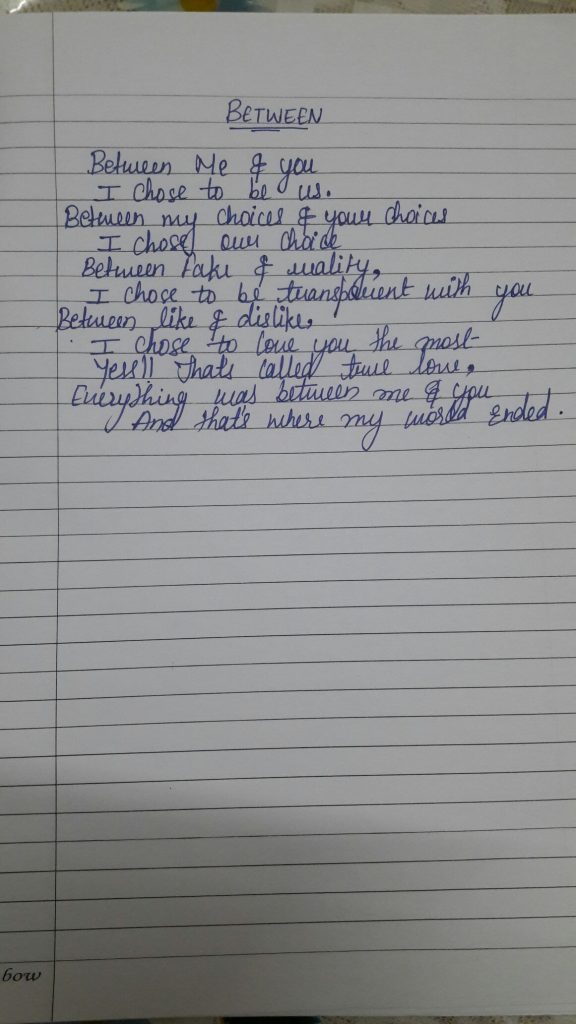 BETWEEN
Between Me & you
I chose to be us.
Between my choices & your choices
I chose our choice
Between fake & reality,
I chose to be transparent with you
Between like & dislike,
I chose to love you the most
Yess!! Thats called true love,
Everything was between me & you
And that's where my world ended.
bow